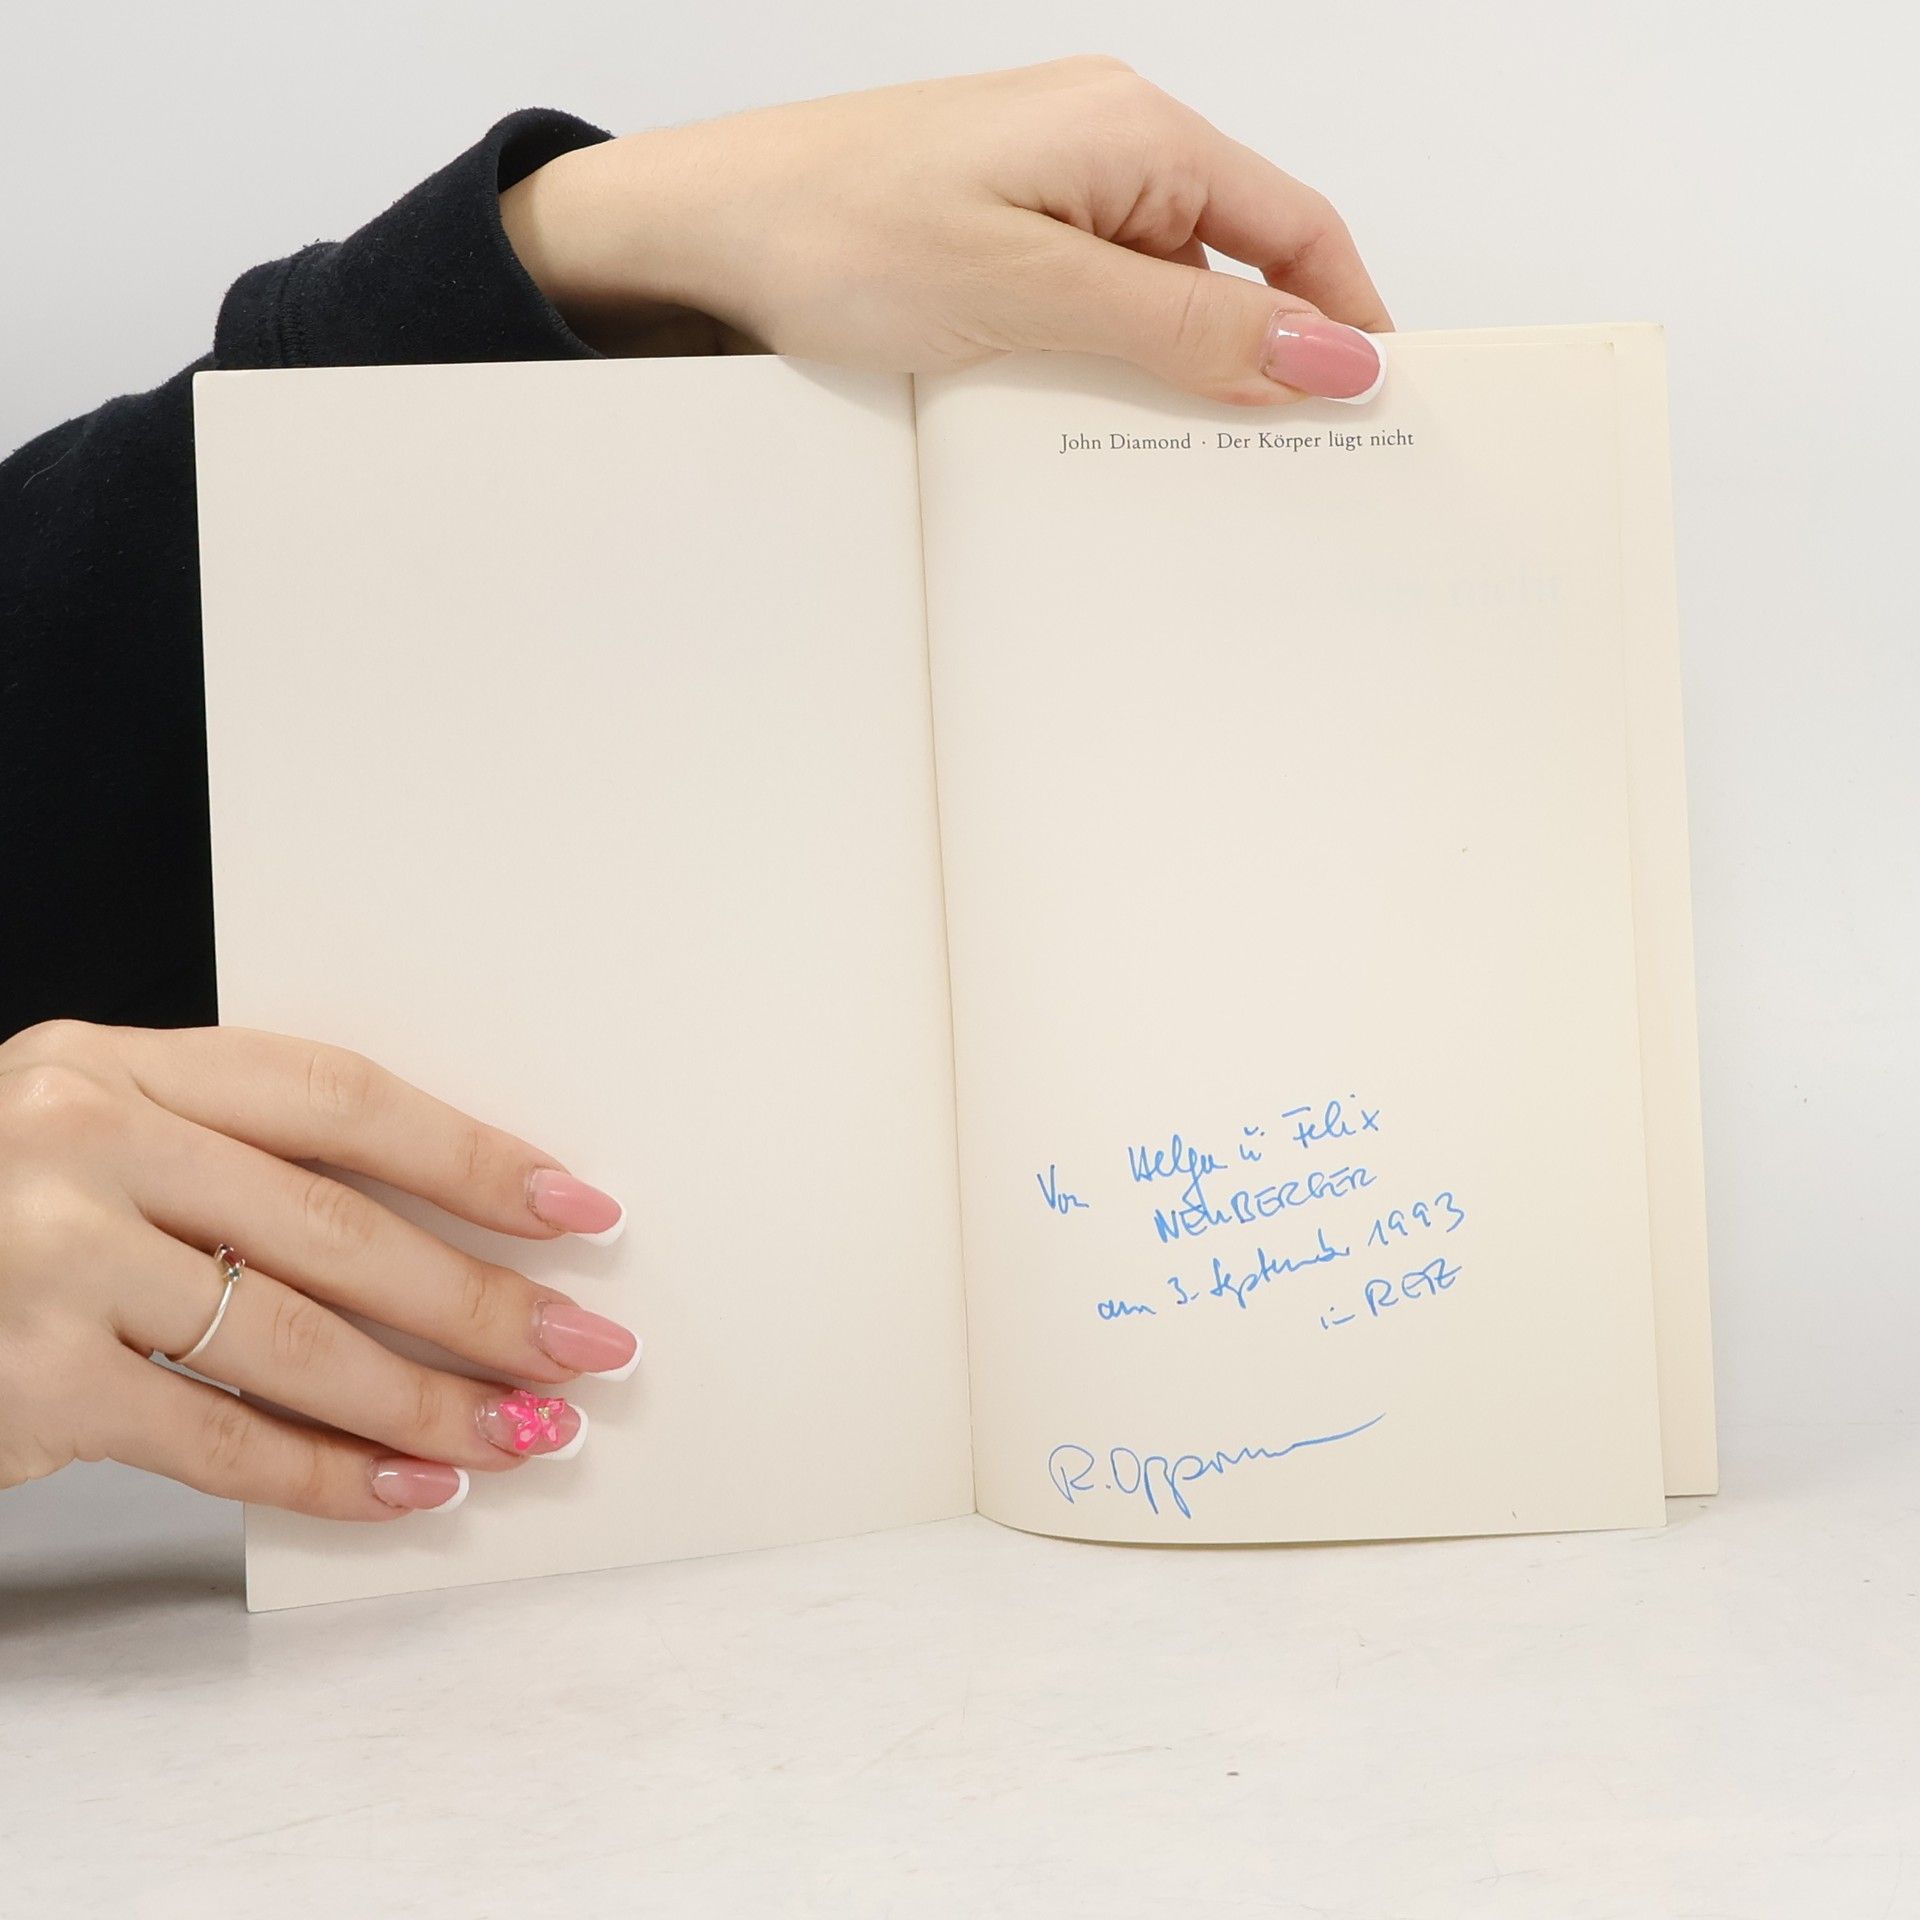 John Diamond · Der Körper lügt nicht
Von Helga u Felix
NEUBERGER
am 3. September 1993
in RETZ
R.